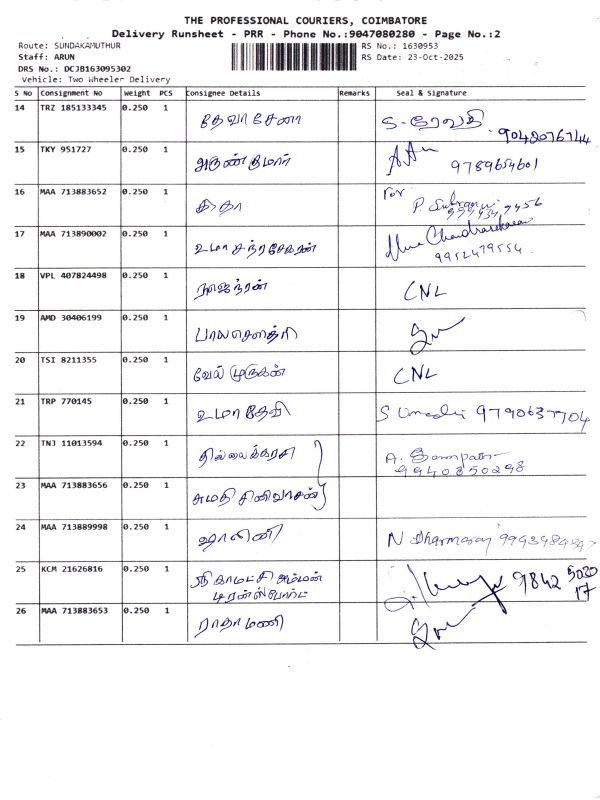 THE PROFESSIONAL COURIERS, COIMBATORE
Delivery Runsheet - PRR - Phone No.:9047080280 - Page No.:2
Route: SUNDAKAMUTHUR RS No.: 1630953
Staff: ARUN RS Date: 23-Oct-2025
DRS No.: DCJB163095302
Vehicle: Two Wheeler Delivery
S No Consignment No Weight PCS Consignee Details Remarks Seal & Signature
14 TRZ 185133345 0.250 1 தேவாசேனா S. ரேவதி
15 TKY 951727 0.250 1 அருண்குமார் 9789654601
16 MAA 713883652 0.250 1 கீதா For P.
17 MAA 713890002 0.250 1 உமா சந்ரசேகரன் Uma Chandrasekaran
9952479554
18 VPL 407824498 0.250 1 CNL
19 AMD 30406199 0.250 1
20 TSI 8211355 0.250 1 வேல் முருகன் CNL
21 TRP 770145 0.250 1 உமாதேவி S Umadevi 9790637704
22 TNJ 11013594 0.250 1 தில்லைக்கரசி A.
9940350298
23 MAA 713883656 0.250 1 சுமதி சினிவாசன்
24 MAA 713889998 0.250 1 ஷாலினி N Dharmaraj
25 KCM 21626816 0.250 1 ஸ்ரீ காமட்சி அம்மன் 9842 5020
டிரன்ஸ்போர்ட் 17
26 MAA 713883653 0.250 1 ராதாமணி